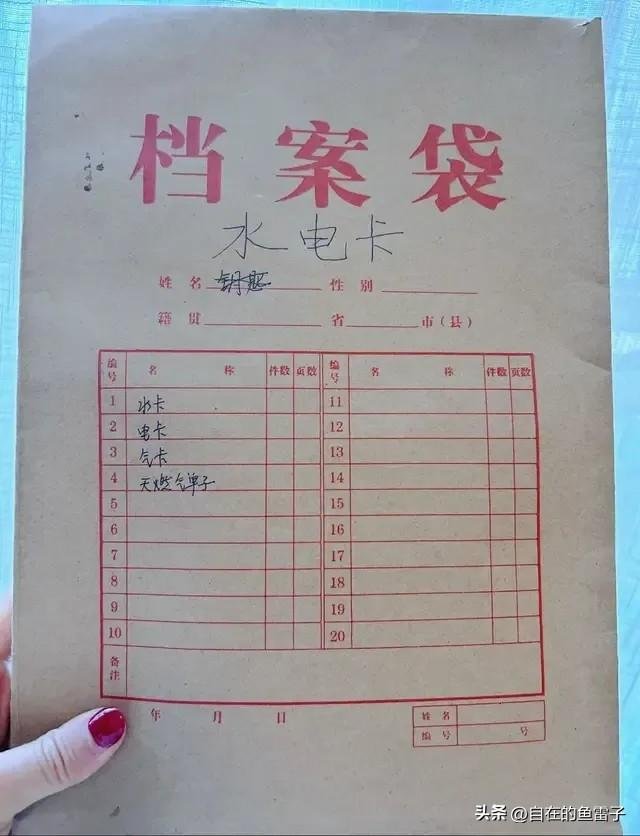 档案袋
水电卡
姓名 钥匙 性别
籍贯 省 市(县)
编号 名称 件数 页数 编号 名称 件数 页数
1 水卡 11
2 电卡 12
3 气卡 13
4 天燃气单子 14
5 15
6 16
7 17
8 18
9 19
10 20
备注
年 月 日
姓名
编号 号
头条 @自在的鱼雷子